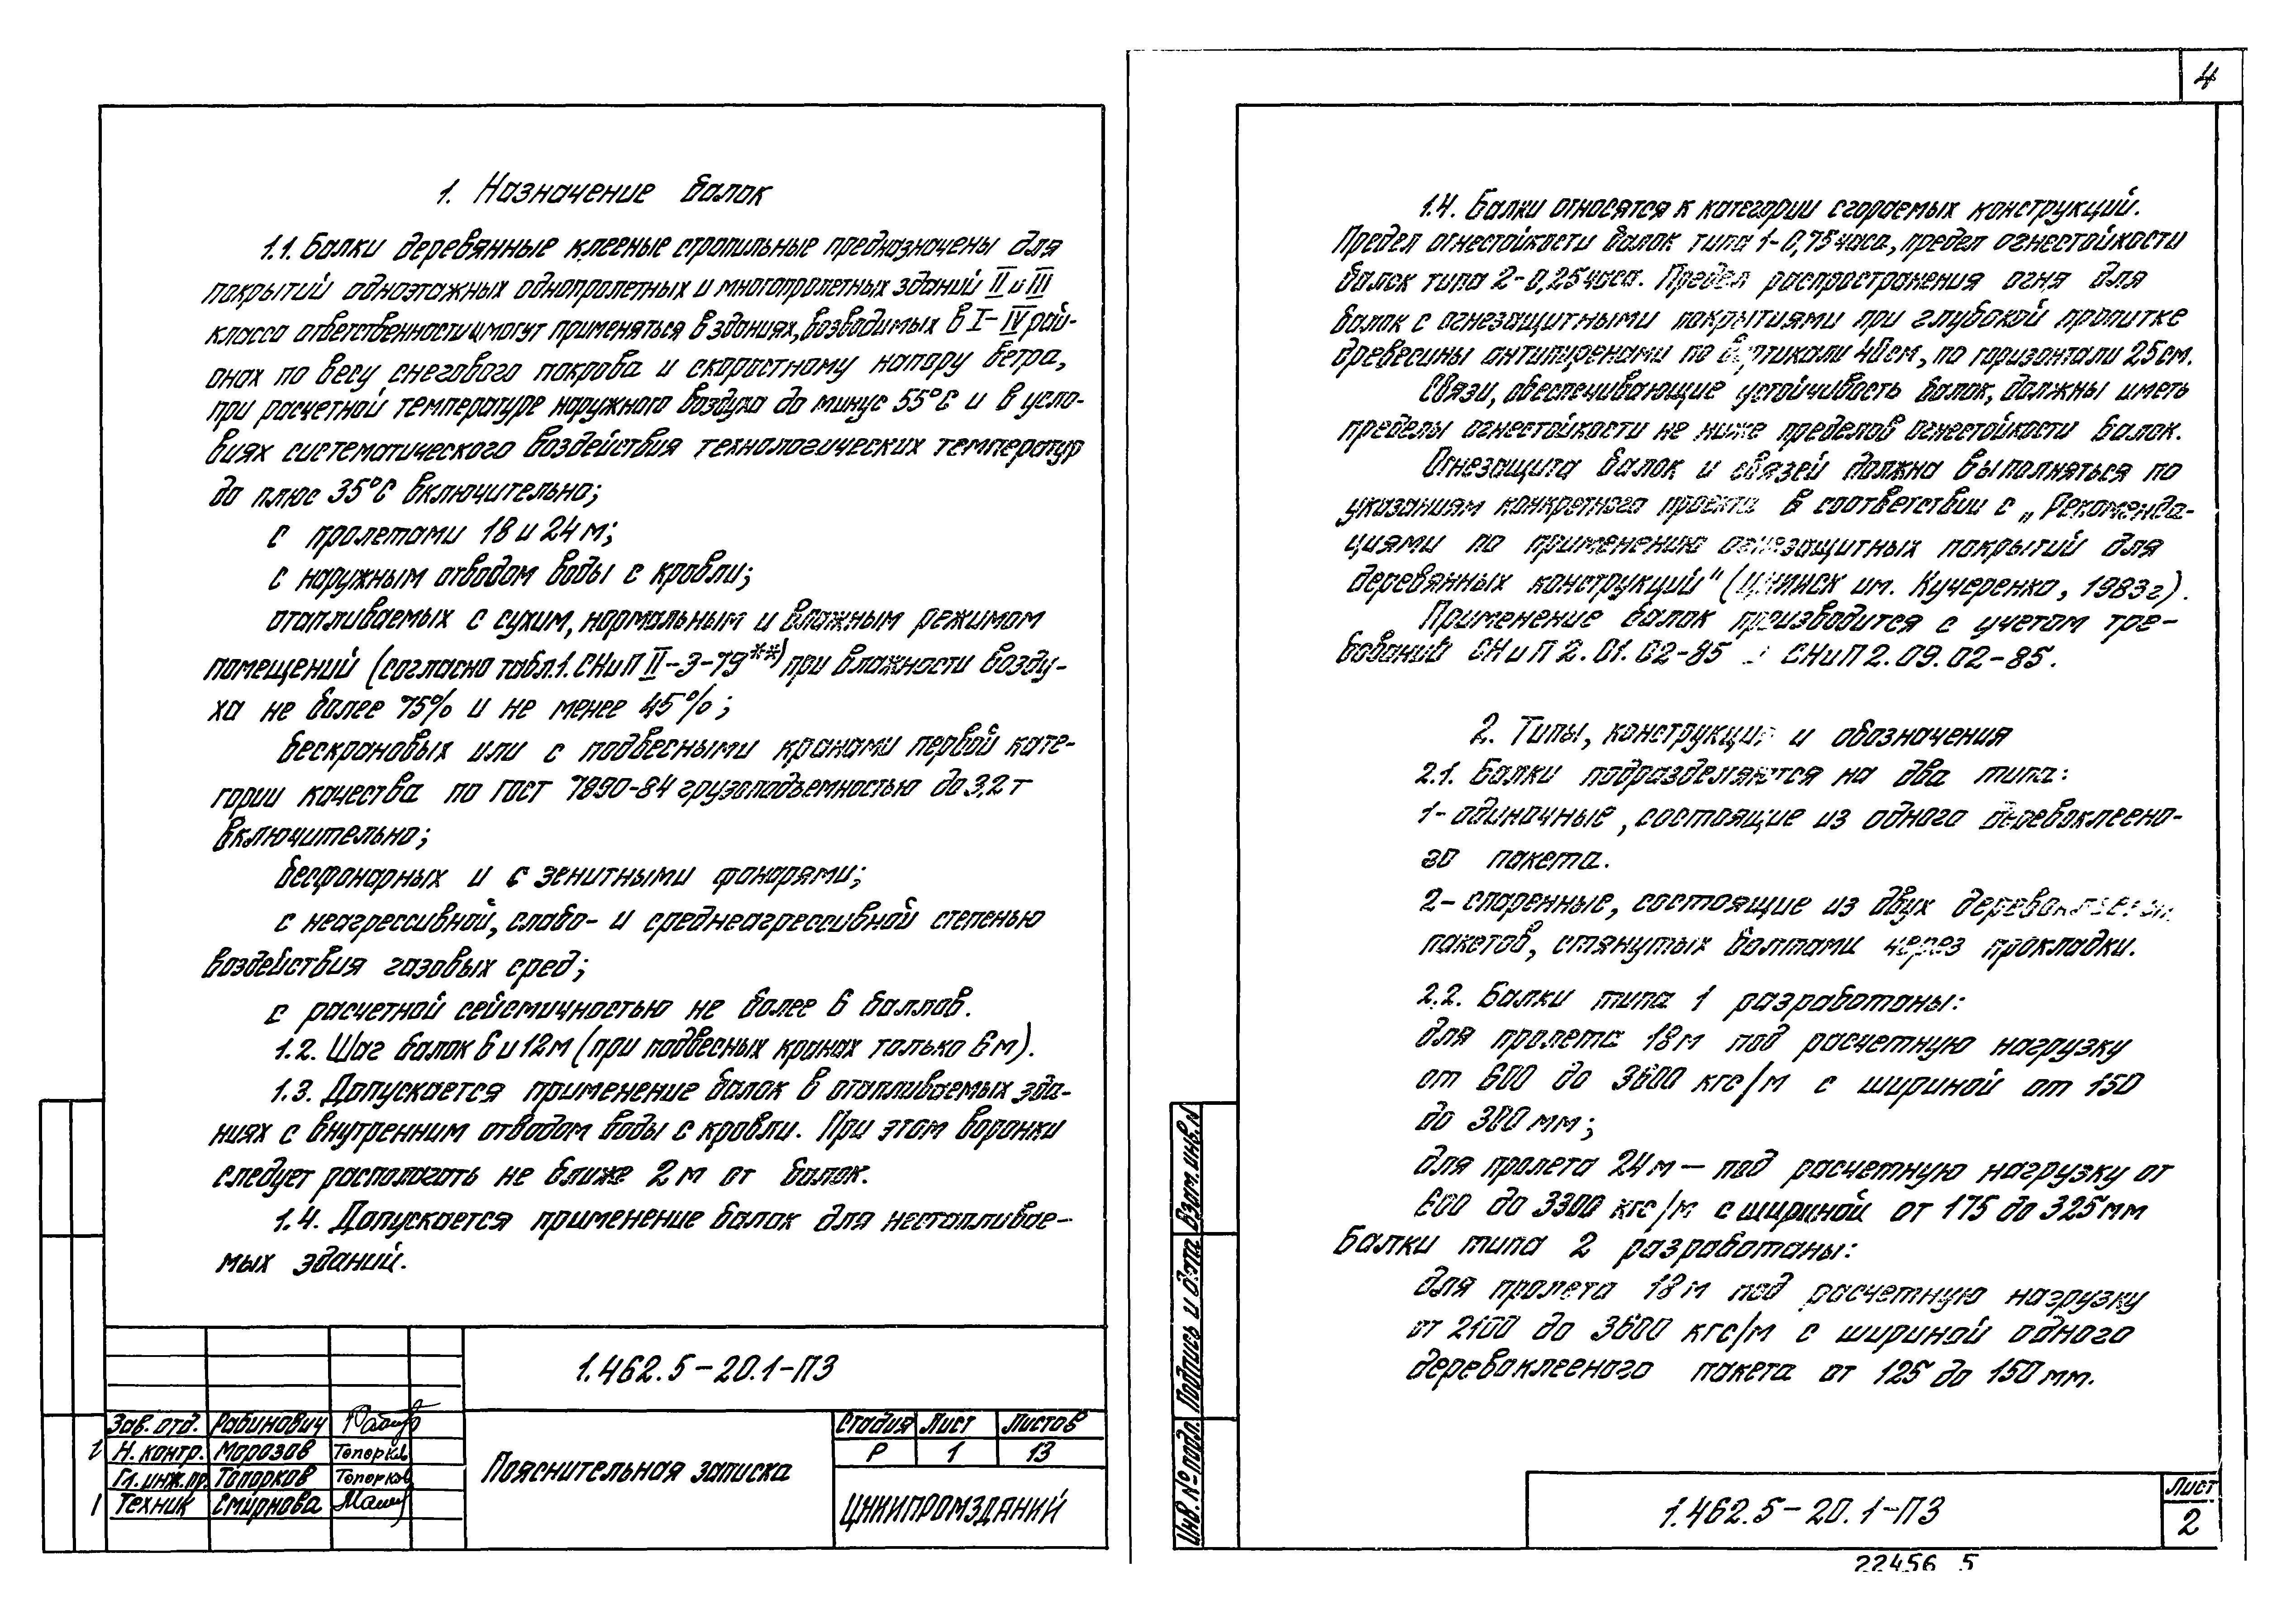 1. Назначение балок
1.1. Балки деревянные клееные стропильные предназначены для
покрытий одноэтажных однопролетных и многопролетных зданий II и III
класса ответственности и могут применяться в зданиях, возводимых в I–IV рай-
онах по весу снегового покрова и скоростному напору ветра,
при расчетной температуре наружного воздуха до минус 55°С и в усло-
виях систематического воздействия технологических температур
до плюс 35°С включительно;
с пролетами 18 и 24 м;
с наружным отводом воды с кровли;
отапливаемых с сухим, нормальным и влажным режимом
помещений (согласно табл.1. СНиП II-3-79**) при влажности возду-
ха не более 75% и не менее 45%;
бескрановых или с подвесными кранами первой кате-
гории качества по ГОСТ 7890-84 грузоподъемностью до 3,2 т
включительно;
бесфонарных и с зенитными фонарями;
с неагрессивной, слабо- и среднеагрессивной степенью
воздействия газовых сред;
с расчетной сейсмичностью не более 6 баллов.
1.2. Шаг балок 6 и 12 м (при подвесных кранах только 6 м).
1.3. Допускается применение балок в отапливаемых зда-
ниях с внутренним отводом воды с кровли. При этом воронки
следует располагать не ближе 2 м от балок.
1.4. Допускается применение балок для неотапливае-
мых зданий.
1.462.5-20.1-ПЗ
Зав. отд. Рабинович
Н. контр. Морозов Топорков
Гл. инж. пр. Топорков Топорков
Техник Смирнова
Пояснительная записка
Стадия Лист Листов
Р 1 13
ЦНИИПРОМЗДАНИЙ
4
1.4. Балки относятся к категории сгораемых конструкций.
Предел огнестойкости балок типа 1-0,75 часа, предел огнестойкости
балок типа 2-0,25 часа. Предел распространения огня для
балок с огнезащитными покрытиями при глубокой пропитке
древесины антипиренами по вертикали 40 см, по горизонтали 25 см.
Связи, обеспечивающие устойчивость балок, должны иметь
пределы огнестойкости не ниже пределов огнестойкости балок.
Огнезащита балок и связей должна выполняться по
указаниям конкретного проекта в соответствии с „Рекоменда-
циями по применению огнезащитных покрытий для
деревянных конструкций" (ЦНИИСК им. Кучеренко, 1983 г).
Применение балок производится с учетом тре-
бований СНиП 2.01.02-85 и СНиП 2.09.02-85.
2. Типы, конструкция и обозначения
2.1. Балки подразделяются на два типа:
1- одиночные, состоящие из одного деревоклеено-
го пакета.
2- спаренные, состоящие из двух деревоклееных
пакетов, стянутых болтами через прокладки.
2.2. Балки типа 1 разработаны:
для пролета 18 м под расчетную нагрузку
от 600 до 3600 кгс/м с шириной от 150
до 300 мм;
для пролета 24 м — под расчетную нагрузку от
600 до 3300 кгс/м с шириной от 175 до 325 мм
Балки типа 2 разработаны:
для пролета 18 м под расчетную нагрузку
от 2100 до 3600 кгс/м с шириной одного
деревоклееного пакета от 125 до 150 мм.
Взам. инв. №
Подпись и дата
Инв. № подл.
1.462.5-20.1-ПЗ
Лист
2
22456 5